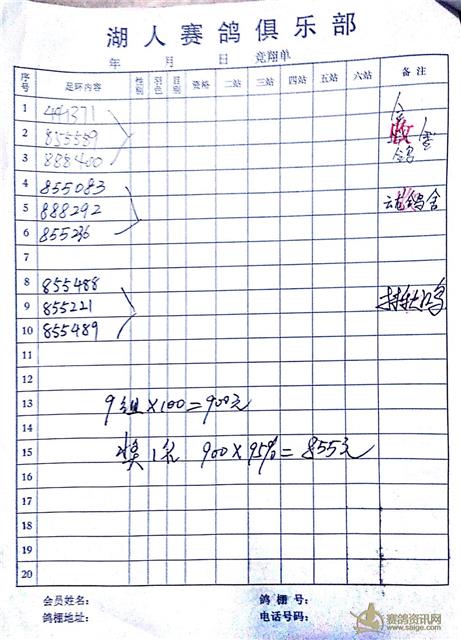 湖人赛鸽俱乐部
年 月 日 竞翔单
序号 足环内容 性别 羽色 目别 资格 二站 三站 四站 五站 六站 备注
1 491371
2 855559
3 888400 鸽
4 855083
5 888292 鸽舍
6 855236
7
8 855488
9 855221
10 855489
11
12
13 9组×100=900元
14
15 奖1名 900×95%=855元
16
17
18
19
20
会员姓名： 鸽棚号：
鸽棚地址： 电话号码：
赛鸽资讯网
www.saige.com